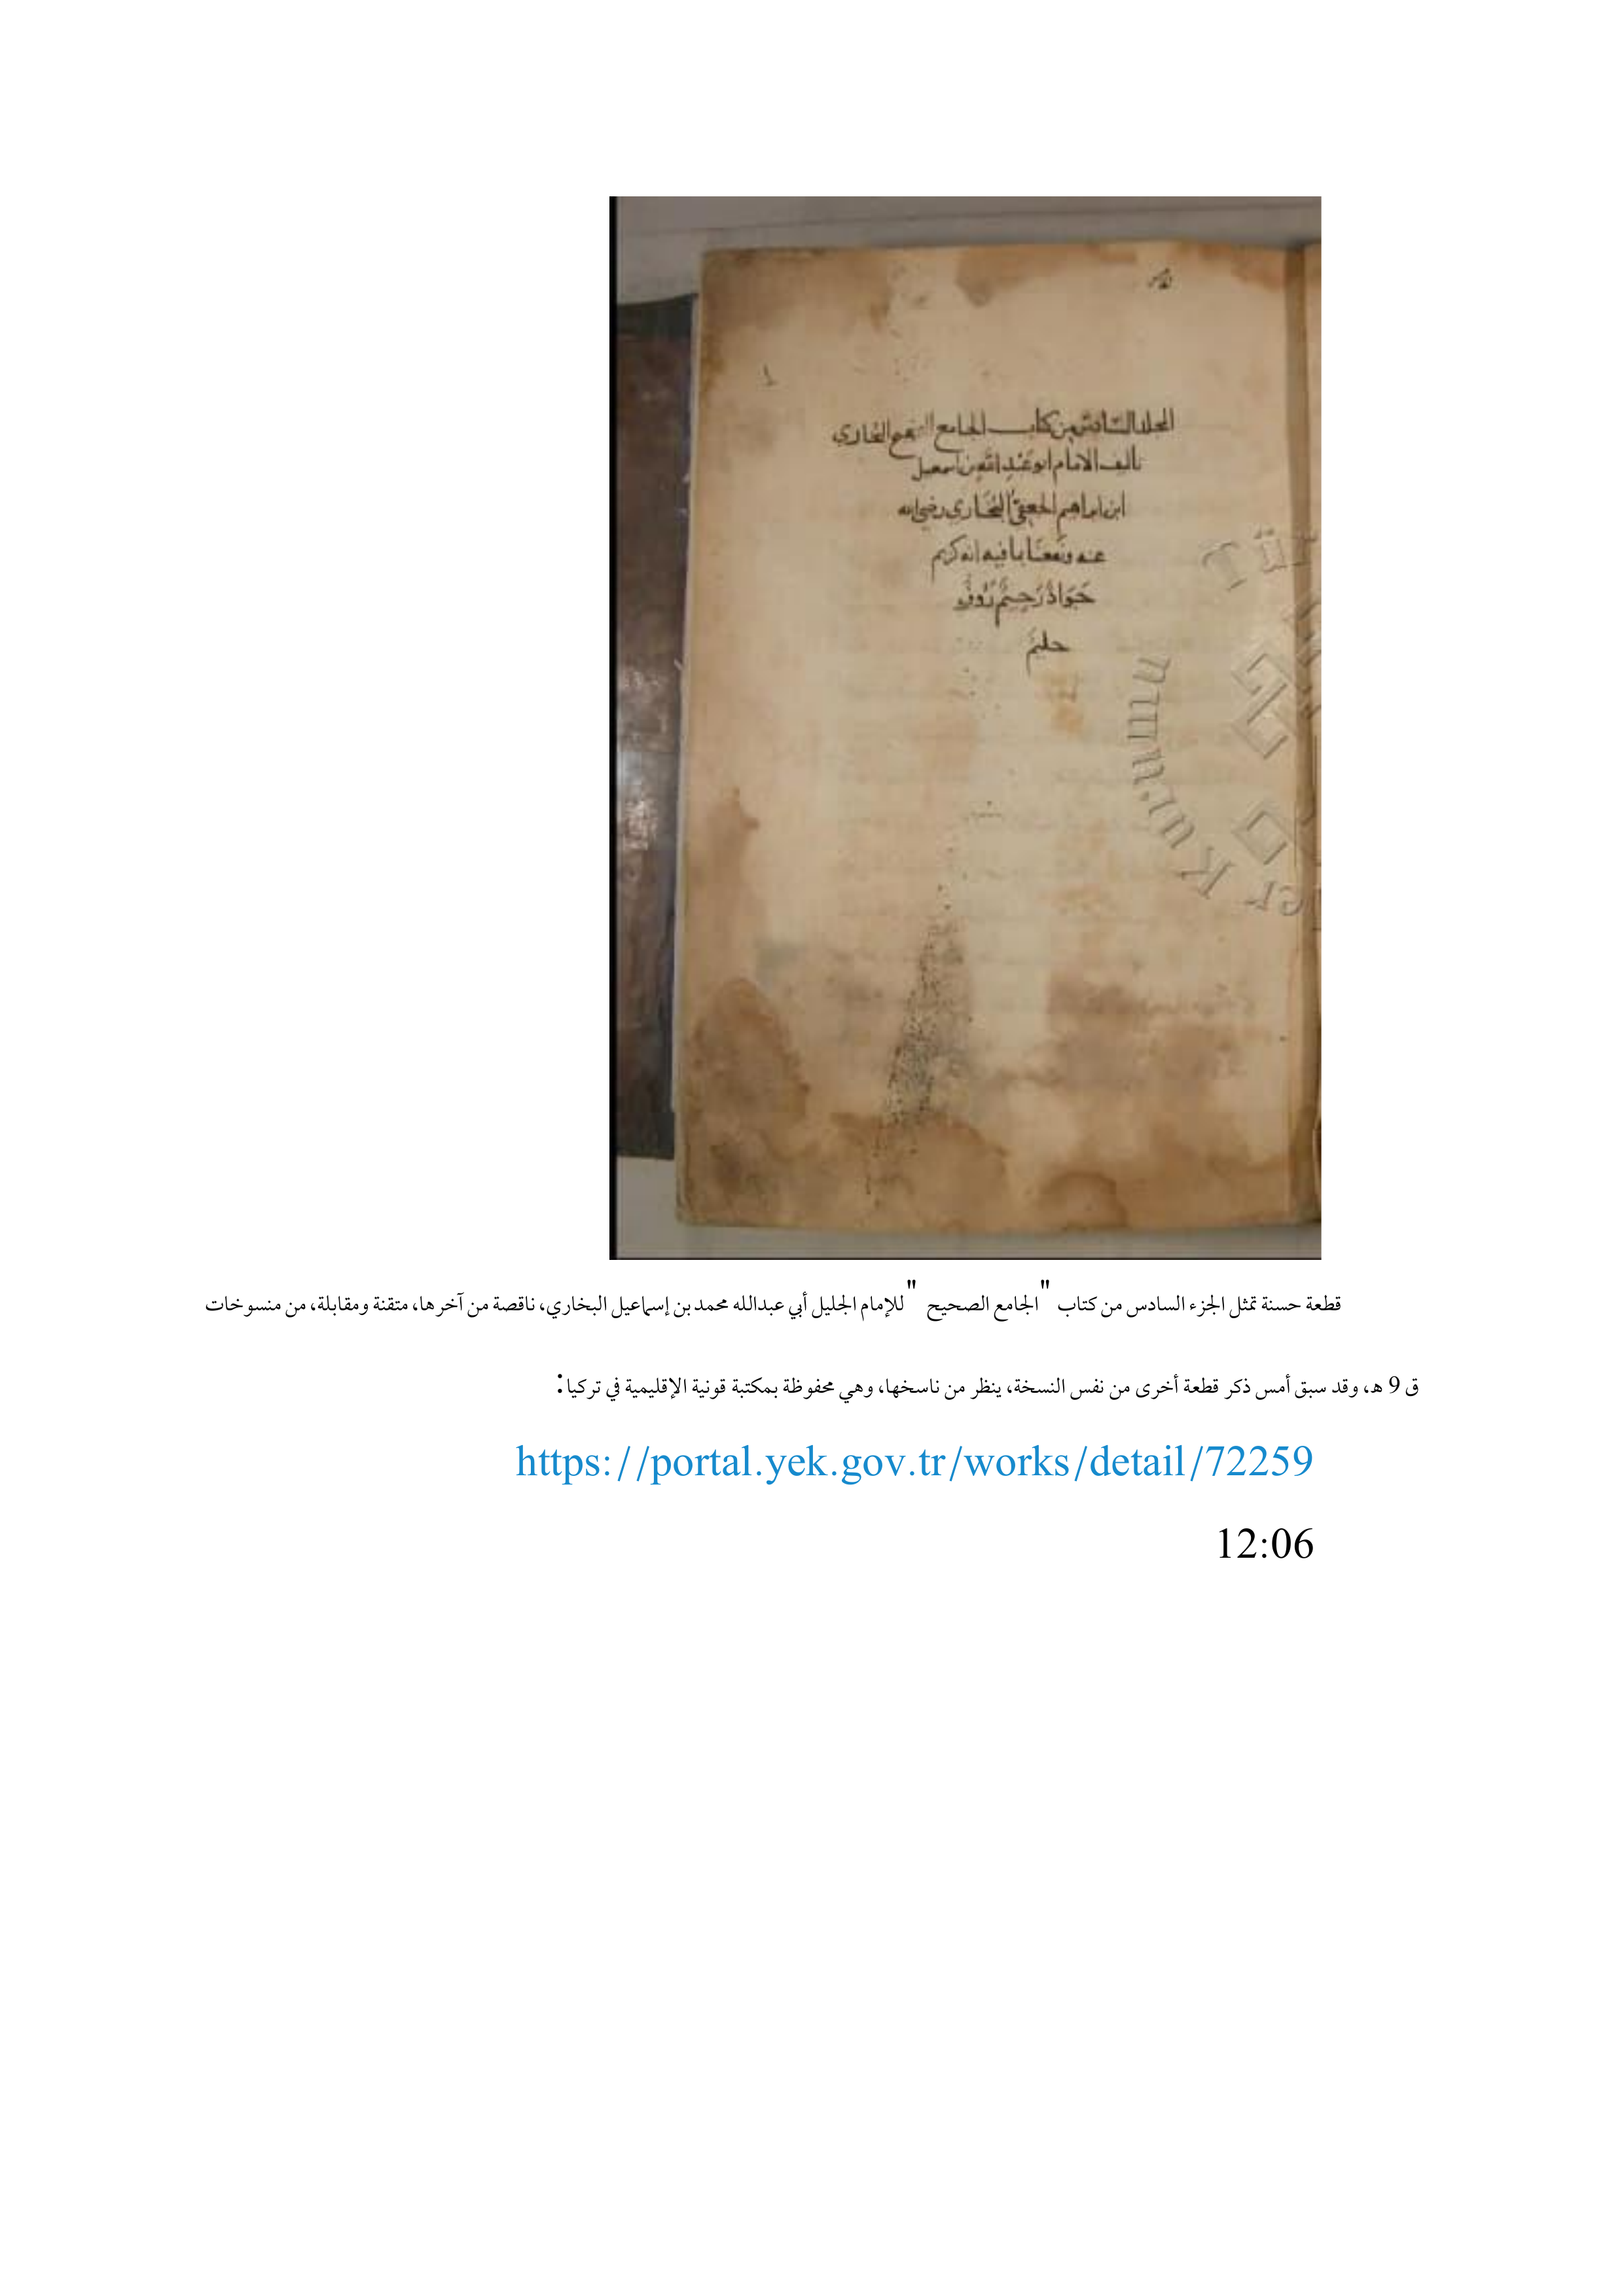 المجلد السادس من كتاب الجامع الصحيح البخاري
تأليف الامام ابو عبد الله بن اسمعيل
ابن ابراهيم الجعفي البخاري رضي الله
عنه ونفعنا بما فيه انه كريم
جَوَادٌ رَحِيمٌ رَؤُفٌ
حليمٌ
قطعة حسنة تمثل الجزء السادس من كتاب "الجامع الصحيح" للإمام الجليل أبي عبدالله محمد بن إسماعيل البخاري، ناقصة من آخرها، متقنة ومقابلة، من منسوخات
ق 9 هـ، وقد سبق أمس ذكر قطعة أخرى من نفس النسخة، ينظر من ناسخها، وهي محفوظة بمكتبة قونية الإقليمية في تركيا:
https://portal.yek.gov.tr/works/detail/72259
12:06